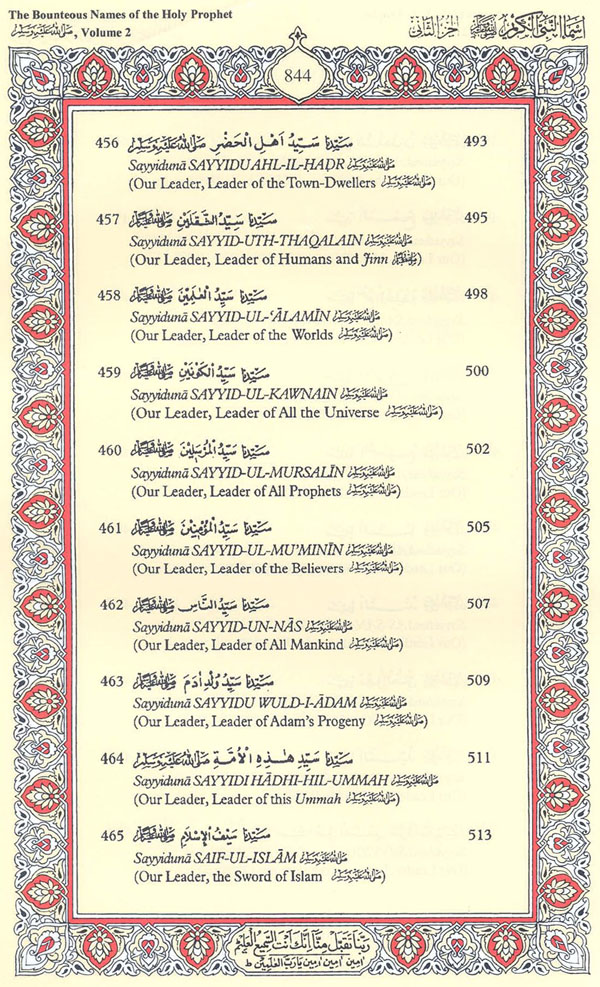 The Bounteous Names of the Holy Prophet
ﷺ, Volume 2
اسماء النبی الکریم ﷺ الجزء الثانی
844
456 سَيِّدُنَا سَيِّدُ اَهْلِ الْحَضْرِ ﷺ 493
Sayyidunā SAYYIDU AHL-IL-ḤAḌR ﷺ
(Our Leader, Leader of the Town-Dwellers ﷺ)
457 سَيِّدُنَا سَيِّدُ الثَّقَلَيْنِ ﷺ 495
Sayyidunā SAYYID-UTH-THAQALAIN ﷺ
(Our Leader, Leader of Humans and Jinn ﷺ)
458 سَيِّدُنَا سَيِّدُ الْعٰلَمِيْنَ ﷺ 498
Sayyidunā SAYYID-UL-‘ĀLAMĪN ﷺ
(Our Leader, Leader of the Worlds ﷺ)
459 سَيِّدُنَا سَيِّدُ الْكَوْنَيْنِ ﷺ 500
Sayyidunā SAYYID-UL-KAWNAIN ﷺ
(Our Leader, Leader of All the Universe ﷺ)
460 سَيِّدُنَا سَيِّدُ الْمُرْسَلِيْنَ ﷺ 502
Sayyidunā SAYYID-UL-MURSALĪN ﷺ
(Our Leader, Leader of All Prophets ﷺ)
461 سَيِّدُنَا سَيِّدُ الْمُؤْمِنِيْنَ ﷺ 505
Sayyidunā SAYYID-UL-MU’MINĪN ﷺ
(Our Leader, Leader of the Believers ﷺ)
462 سَيِّدُنَا سَيِّدُ النَّاسِ ﷺ 507
Sayyidunā SAYYID-UN-NĀS ﷺ
(Our Leader, Leader of All Mankind ﷺ)
463 سَيِّدُنَا سَيِّدُ وُلْدِ اٰدَمَ ﷺ 509
Sayyidunā SAYYIDU WULD-I-ĀDAM ﷺ
(Our Leader, Leader of Adam’s Progeny ﷺ)
464 سَيِّدُنَا سَيِّدُ هٰذِهِ الْاُمَّةِ ﷺ 511
Sayyidunā SAYYIDI HĀDHI-HIL-UMMAH ﷺ
(Our Leader, Leader of this Ummah ﷺ)
465 سَيِّدُنَا سَيْفُ الْاِسْلَامِ ﷺ 513
Sayyidunā SAIF-UL-ISLĀM ﷺ
(Our Leader, the Sword of Islam ﷺ)
رَبَّنَا تَقَبَّلْ مِنَّا اِنَّكَ اَنْتَ السَّمِيْعُ الْعَلِيْمُ
اٰمِيْن اٰمِيْن اٰمِيْن يَارَبَّ الْعٰلَمِيْنَ ط